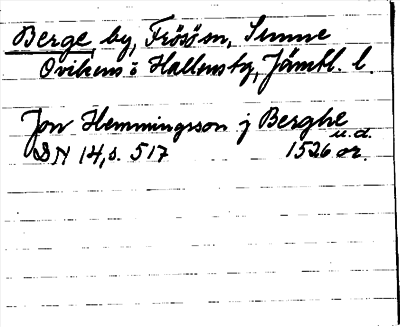 Berge by, Frösö sn, Sunne
Ovikens o Hallens tg, Jämtl. l.
Jon Hemmingsson j Berghe
u.d.
DN 14, s. 517 1526 or.